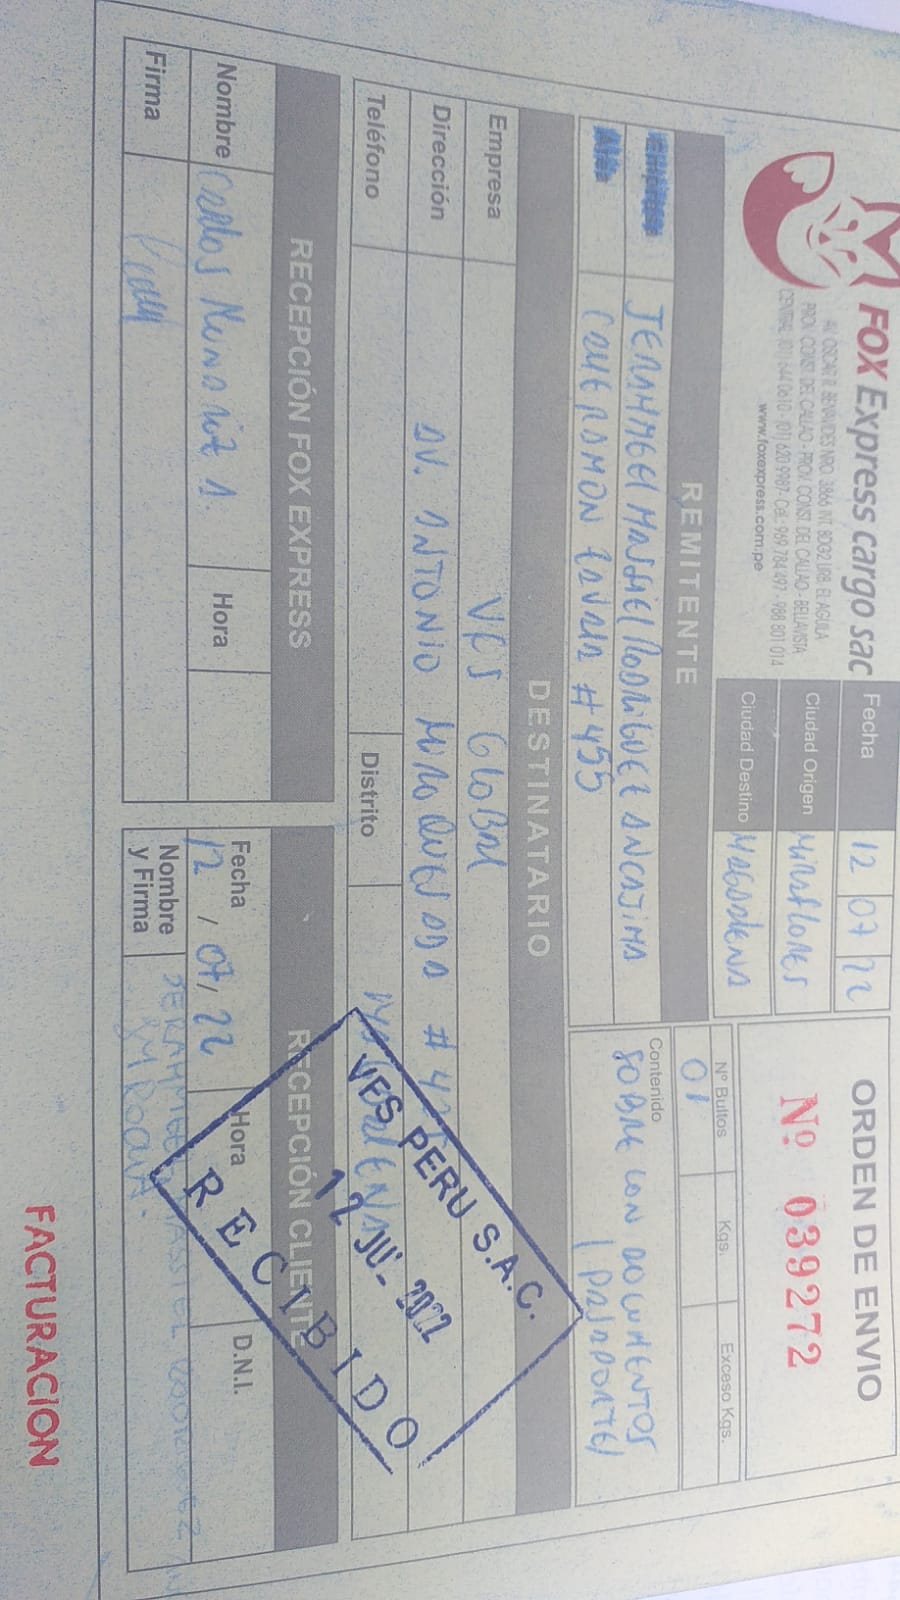 FOX Express cargo sac
AV. OSCAR R. BENAVIDES NRO. 3866 INT. 80G2 URB. EL AGUILA
PROV. CONST. DEL CALLAO - PROV. CONST. DEL CALLAO - BELLAVISTA
CENTRAL (01) 644 0610 - (01) 620 9987 - Cel.: 969 784 497 - 988 801 014
www.foxexpress.com.pe
Fecha 12 07 22
Ciudad Origen Miraflores
Ciudad Destino Magdalena
ORDEN DE ENVIO
Nº 039272
REMITENTE
RODRIGUEZ ANCAJIMA
# 455
Nº Bultos Kgs. Exceso Kgs.
01
Contenido
SOBRE CON DOCUMENTOS
1 PASAPORTE
DESTINATARIO
Empresa VFS GLOBAL
Dirección AV. ANTONIO MIRO QUESADA #
Teléfono Distrito
RECEPCIÓN FOX EXPRESS
Nombre Carlos
Hora
Firma
RECEPCIÓN CLIENTE
Fecha Hora D.N.I.
12 / 07 / 22
Nombre
y Firma
VFS PERU S.A.C.
12 JUL 2022
RECIBIDO
FACTURACION